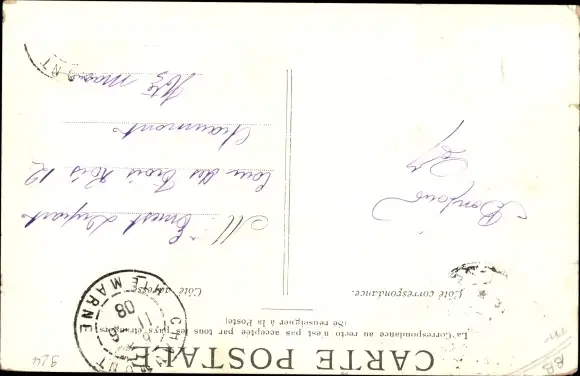 CARTE POSTALE
La Correspondance au recto n'est pas acceptée par tous les pays étrangers
(Se renseigner à la Poste)
Côté correspondance.
Côté adresse.
Bonjour
M. Ernest
Cour des Trois Rois 12
Chaumont
Hte Marne
CH
TE MARNE
11
08
924